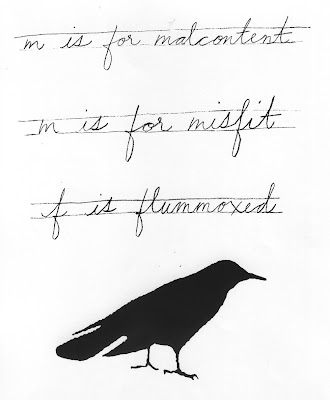 m is for malcontent
m is for misfit
f is flummoxed